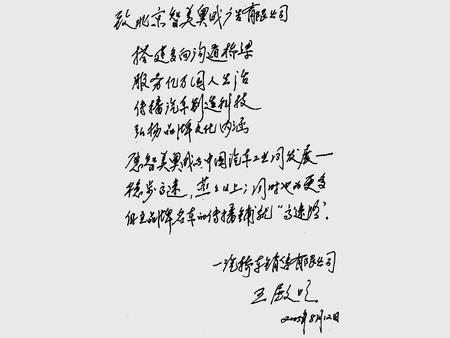 致北京智美奥成广告有限公司
搭建多向沟通桥梁
服务亿万国人生活
传播汽车制造科技
弘扬品牌文化内涵
愿智美奥成与中国汽车工业同发展—
稳步高速，蒸蒸日上；同时也为更多
自主品牌名车的传播铺就“高速路”.
一汽轿车销售有限公司
王殿明
2005年8月12日